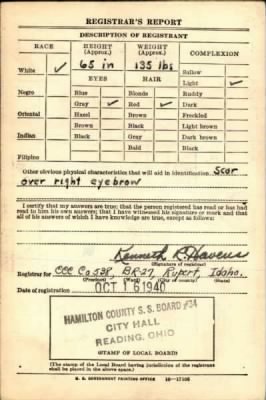 REGISTRAR'S REPORT
DESCRIPTION OF REGISTRANT
RACE HEIGHT (Approx.) WEIGHT (Approx.) COMPLEXION
White ✓ 65 in 135 lbs Sallow
EYES HAIR Light ✓
Negro Blue Blonde Ruddy
Gray ✓ Red ✓ Dark
Oriental Hazel Brown Freckled
Brown Black Light brown
Indian Black Gray Dark brown
Bald Black
Filipino
Other obvious physical characteristics that will aid in identification Scar
over right eyebrow
I certify that my answers are true; that the person registered has read or has had
read to him his own answers; that I have witnessed his signature or mark and that
all of his answers of which I have knowledge are true, except as follows:
Kenneth R. Havens
(Signature of registrar)
Registrar for CCC Co 538, BR-27, Rupert, Idaho.
(Precinct) (Ward) (City or county) (State)
Date of registration OCT 16 1940
HAMILTON COUNTY S. S. BOARD #34
CITY HALL
READING, OHIO
(STAMP OF LOCAL BOARD)
(The stamp of the Local Board having jurisdiction of the registrant
shall be placed in the above space.)
U. S. GOVERNMENT PRINTING OFFICE 16—17105